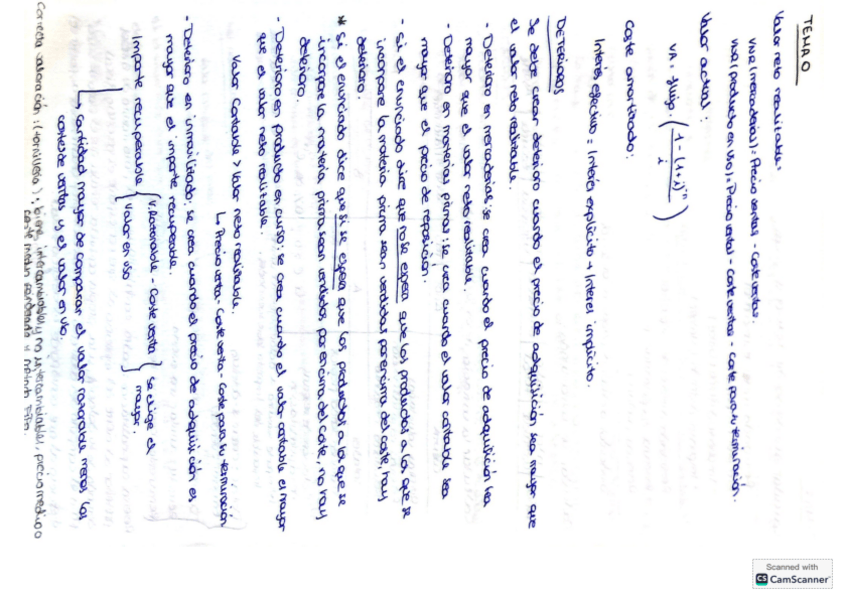 TEMA 0
Valor neto realizable:
VNR (mercaderías): Precio ventas - Coste ventas.
VNR (producto en uso): Precio ventas - coste ventas - coste para su terminación.
Valor actual:
VA = flujo · (1 - (1+i)^-n / i)
Coste amortizado:
Interés efectivo = Interés explícito + Interés implícito.
DETERIOROS
Se debe crear deterioro cuando el precio de adquisición sea mayor que
el valor neto realizable.
- Deterioro en mercaderías: se crea cuando el precio de adquisición sea
mayor que el valor neto realizable.
- Deterioro en materias primas: se crea cuando el valor contable sea
mayor que el precio de reposición.
- Si el enunciado dice que no se espera que los productos a los que se
incorpore la materia prima sean vendidos por encima del coste, hay
deterioro.
* Si el enunciado dice que si se espera que los productos a los que se
incorpore la materia prima sean vendidos por encima del coste, no hay
deterioro.
- Deterioro en producto en curso: se crea cuando el valor contable es mayor
que el valor neto realizable.
Valor Contable > Valor neto realizable.
↳ Precio venta - Coste venta - Coste para su terminación
- Deterioro en inmovilizado: se crea cuando el precio de adquisición es
mayor que el importe recuperable.
Importe recuperable { V. Razonable - Coste venta } se elige el
{ Valor en uso } mayor.
→ cantidad mayor de comparar el valor razonable menos los
costes de ventas y el valor en uso.
Correcta valoración: (tornillería): bienes intercambiables y no intercambiables, precio medio o
coste medio ponderado y método FIFO.
Scanned with
CS CamScanner